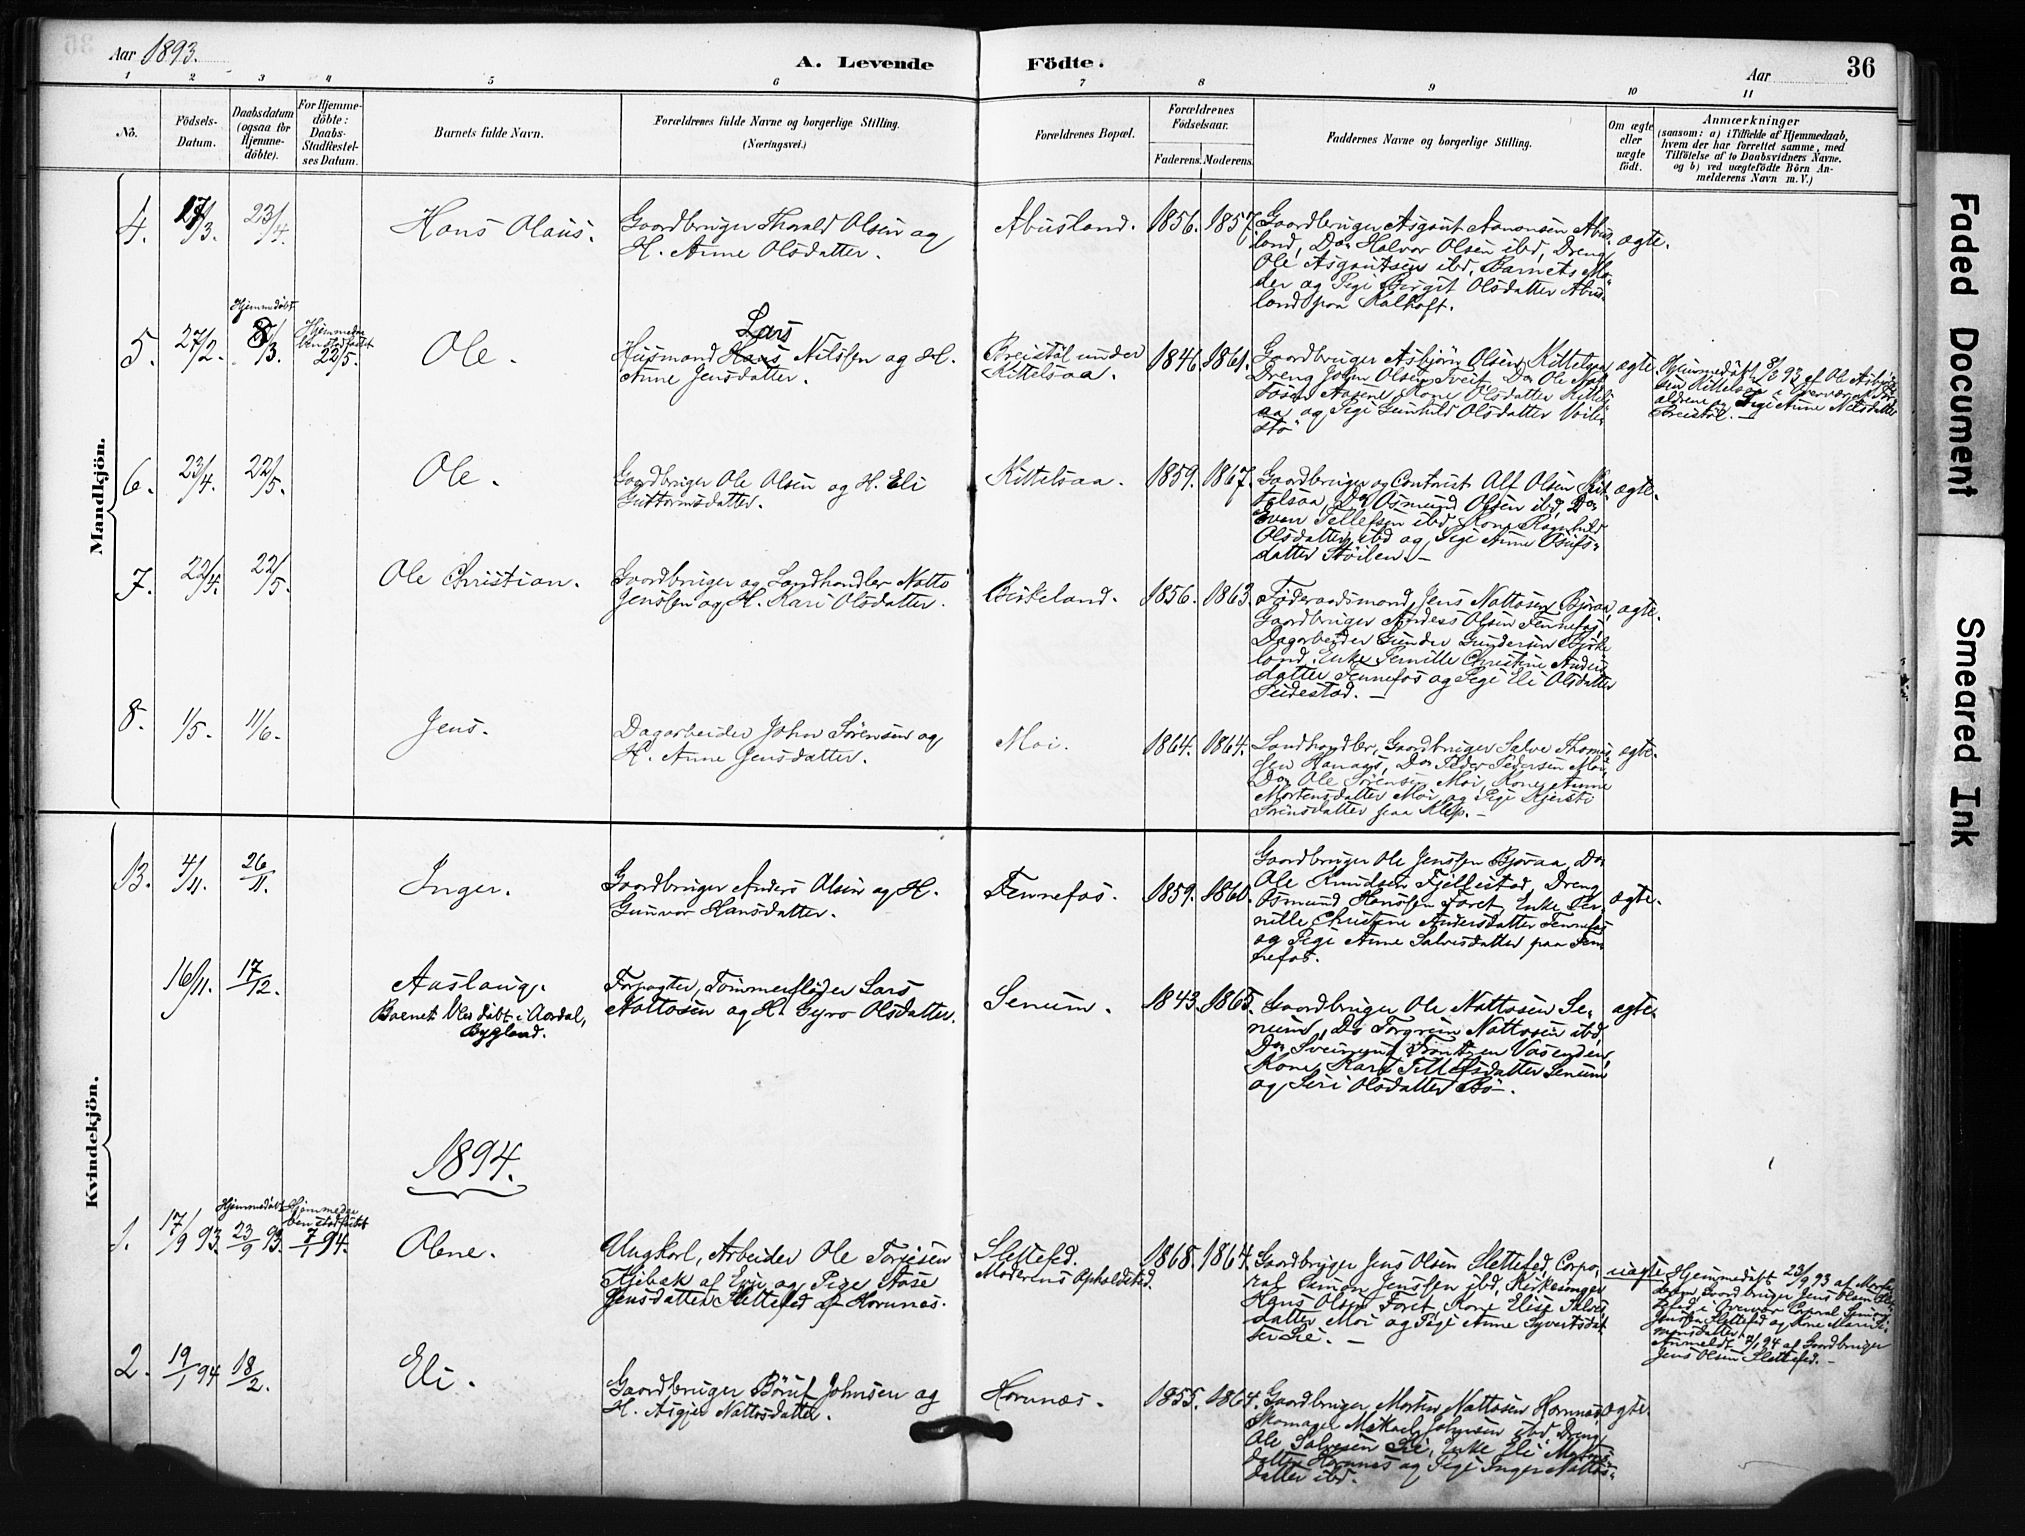 Aar 1893.
A. Levende Födte.
Aar
36
1 2 3 4 5 6 7 8 9 10 11
No.
Födsels-
Datum.
Daabsdatum
(ogsaa for
Hjemme-
döbte).
For Hjemme-
döbte:
Daabs-
Stadfæstel-
ses Datum.
Barnets fulde Navn.
Forældrenes fulde Navne og borgerlige Stilling.
(Næringsvei.)
Forældrenes Bopæl.
Forældrenes
Födselsaar.
Faderens. Moderens.
Faddernes Navne og borgerlige Stilling.
Om ægte
eller
uægte
födt.
Anmærkninger
(saasom: a) i Tilfælde af Hjemmedaab,
hvem der har forrettet samme, med
Tilföielse af to Daabsvidners Navne,
og b) ved uægtefödte Börn An-
melderens Navn m. V.)
Mandkjön.
4. 23/4. Hans Olaus.
Gaardbruger Thorald Olsen og
H. Anne Olsdatter.
Abusland. 1856. 1857.
Gaardbruger Asgaut Aanonsen Abus-
land, Do Halvor Olsen ibd, Dreng
Ole Asgautsen ibd, Barnets Mo-
der og Pige Birgit Olsdatter Abus-
land paa Kalhoft.
ægte.
5. 27/2. Hjemmedøbt 8/3. Hjemmeda-
aben stadfæstet
22/5. Ole.
Lars
Husmand Hans Nilssen og H.
Anne Jensdatter.
Breistöl under
Kittelsaa.
1846. 1861.
Gaardbruger Asbjörn Olsen Kittelsaa
Dreng John Olsen Tveit, Do Ole Nat-
tosen Aasene, Kone Olsdatter Kittels-
aa og Pige Gunhild Olsdatter
stö
ægte.
Hjemmedøbt 8/3 93 af Ole Asbjörn-
sen Kittelsaa i Overvær af For-
ældrene og Pige Anne Nilsdatter
Breistöl. —
6. 23/4. 22/5. Ole.
Gaardbruger Ole Olsen og H. Eli
Guttormsdatter.
Kittelsaa. 1859. 1867.
Gaardbruger og Contorist Alf Olsen Kit-
telsaa, Do Osmund Olsen ibd, Do
Even Tellefsen ibd, Kone Ragnhild
Olsdatter ibd og Pige Anne Osufs-
datter Støilen. —
ægte.
7. 22/4. 22/5. Ole Christian.
Gaardbruger og Landhandler Natto
Jenssen og H. Kari Olsdatter.
Birkeland. 1856. 1863.
Föderaadsmand Jens Nattosen Bjoraa,
Gaardbruger Anders Olsen Fennefos,
Dagarbeider Gunder Gundersen Birke-
land, Enke Pernille Christine Anders-
datter Fennefos og Pige Eli Olsdatter
Feidestad. —
ægte.
8. 1/5. 11/6. Jens.
Dagarbeider John Sörensen og
H. Anne Jensdatter.
Moi. 1864. 1864.
Landhandler, Gaardbruger Salve Thomas-
sen Hanaas, Do Peder Pedersen Moi,
Do Ole Sörensen Moi, Kone Anne
Mortensdatter Moi og Pige Kjersti
Sörensdatter paa Klep. —
ægte.
Kvindekjön.
13. 4/11. 26/11. Inger.
Gaardbruger Anders Olsen og H.
Gunvor Hansdatter.
Fennefos. 1859. 1860.
Gaardbruger Ole Jenssen Bjoraa, Do
Ole Knudsen Fjellestad, Dreng
Osmund Hanssen Foret, Enke Per-
nille Christine Andersdatter Fennefos
og Pige Anne Salvesdatter paa Fen-
nefos.
ægte.
16/11. 17/12. Aaslaug.
Barnet blev döbt i Aardal,
Bygland.
Forpagter, Tömmerfløder Lars
Nattosen og H. Gyro Olsdatter.
Senum. 1843. 1865.
Gaardbruger Ole Nattosen Se-
num, Do Torgrim Nattosen ibd,
Do Sveinung Vasenden,
Kone Kari Tellefsdatter Senum
og Siri Olsdatter Bö.
ægte.
1894.
1. 17/9 93. Hjemmedøbt 23/9 93. Hjemmeda-
aben stadfæstet
7/1 94. Olene.
Ungkarl, Arbeider Ole Torjusen
Kjebak af Evje og Pige Aase
Jensdatter Slettefed af Hornnes.
Slettefed.
Moderens Opholdssted.
1868. 1864.
Gaardbruger Jens Olsen Slettefed, Corpo-
ral Simon Jenssen ibd, Kirkesanger
Hans Olsen Foret, Kone Elise Salves-
datter Moi og Pige Anne Syvertsdat-
ter Lie. —
uægte
Hjemmedøbt 23/9 93 af
Gaardbruger Jens Olsen Slet-
tefed i Overvær Corporal Simon
Jenssen Slettefed og Kone Mari Si-
monsdatter.
Anmeldt 7/1 94 af Gaardbruger
Jens Olsen Slettefed. —
2. 19/1 94 18/2. Eli.
Gaardbruger Börut Johnsen og
H. Asgjer Nattosdatter.
Hornnæs. 1855. 1864.
Gaardbruger Morten Nattosen Hornnæs
Skomager Mikael Johnsen ibd, Dreng
Ole Salvesen Lie, Enke Eli Mortens-
datter Hornnes og Pige Inger Nattos-
datter ibd.
ægte.
Faded Document
Smeared Ink